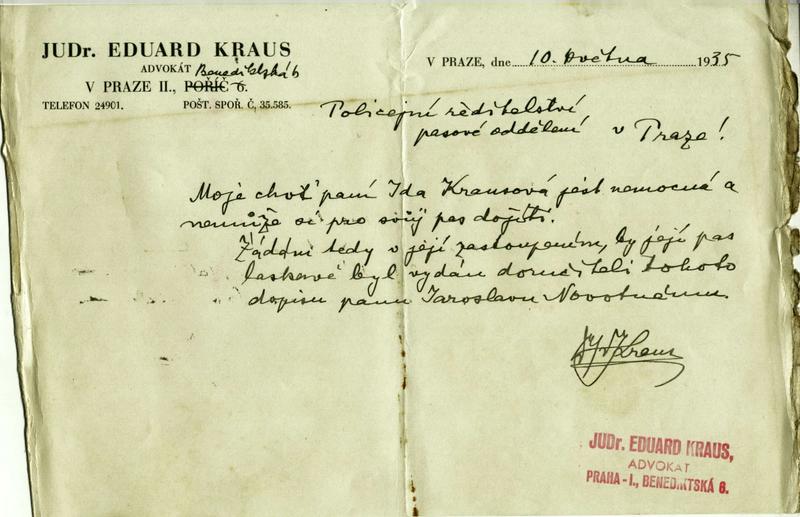 JUDr. EDUARD KRAUS
ADVOKÁT Benediktská 6
V PRAZE II., POŘÍČ 6.
TELEFON 24901. POŠT. SPOŘ. Č, 35.585.
V PRAZE, dne 10. května 1935
Policejní ředitelství
pasové oddělení v Praze!
Moje choť paní Ida Krausová jest nemocná a
nemůže si pro svůj pas dojíti.
Žádám tedy v její zastoupením, by její pas
laskavě byl vydán doručiteli tohoto
dopisu panu Jaroslavu Novotnému.
Kraus
JUDr. EDUARD KRAUS,
ADVOKÁT
PRAHA - I., BENEDIKTSKÁ 6.